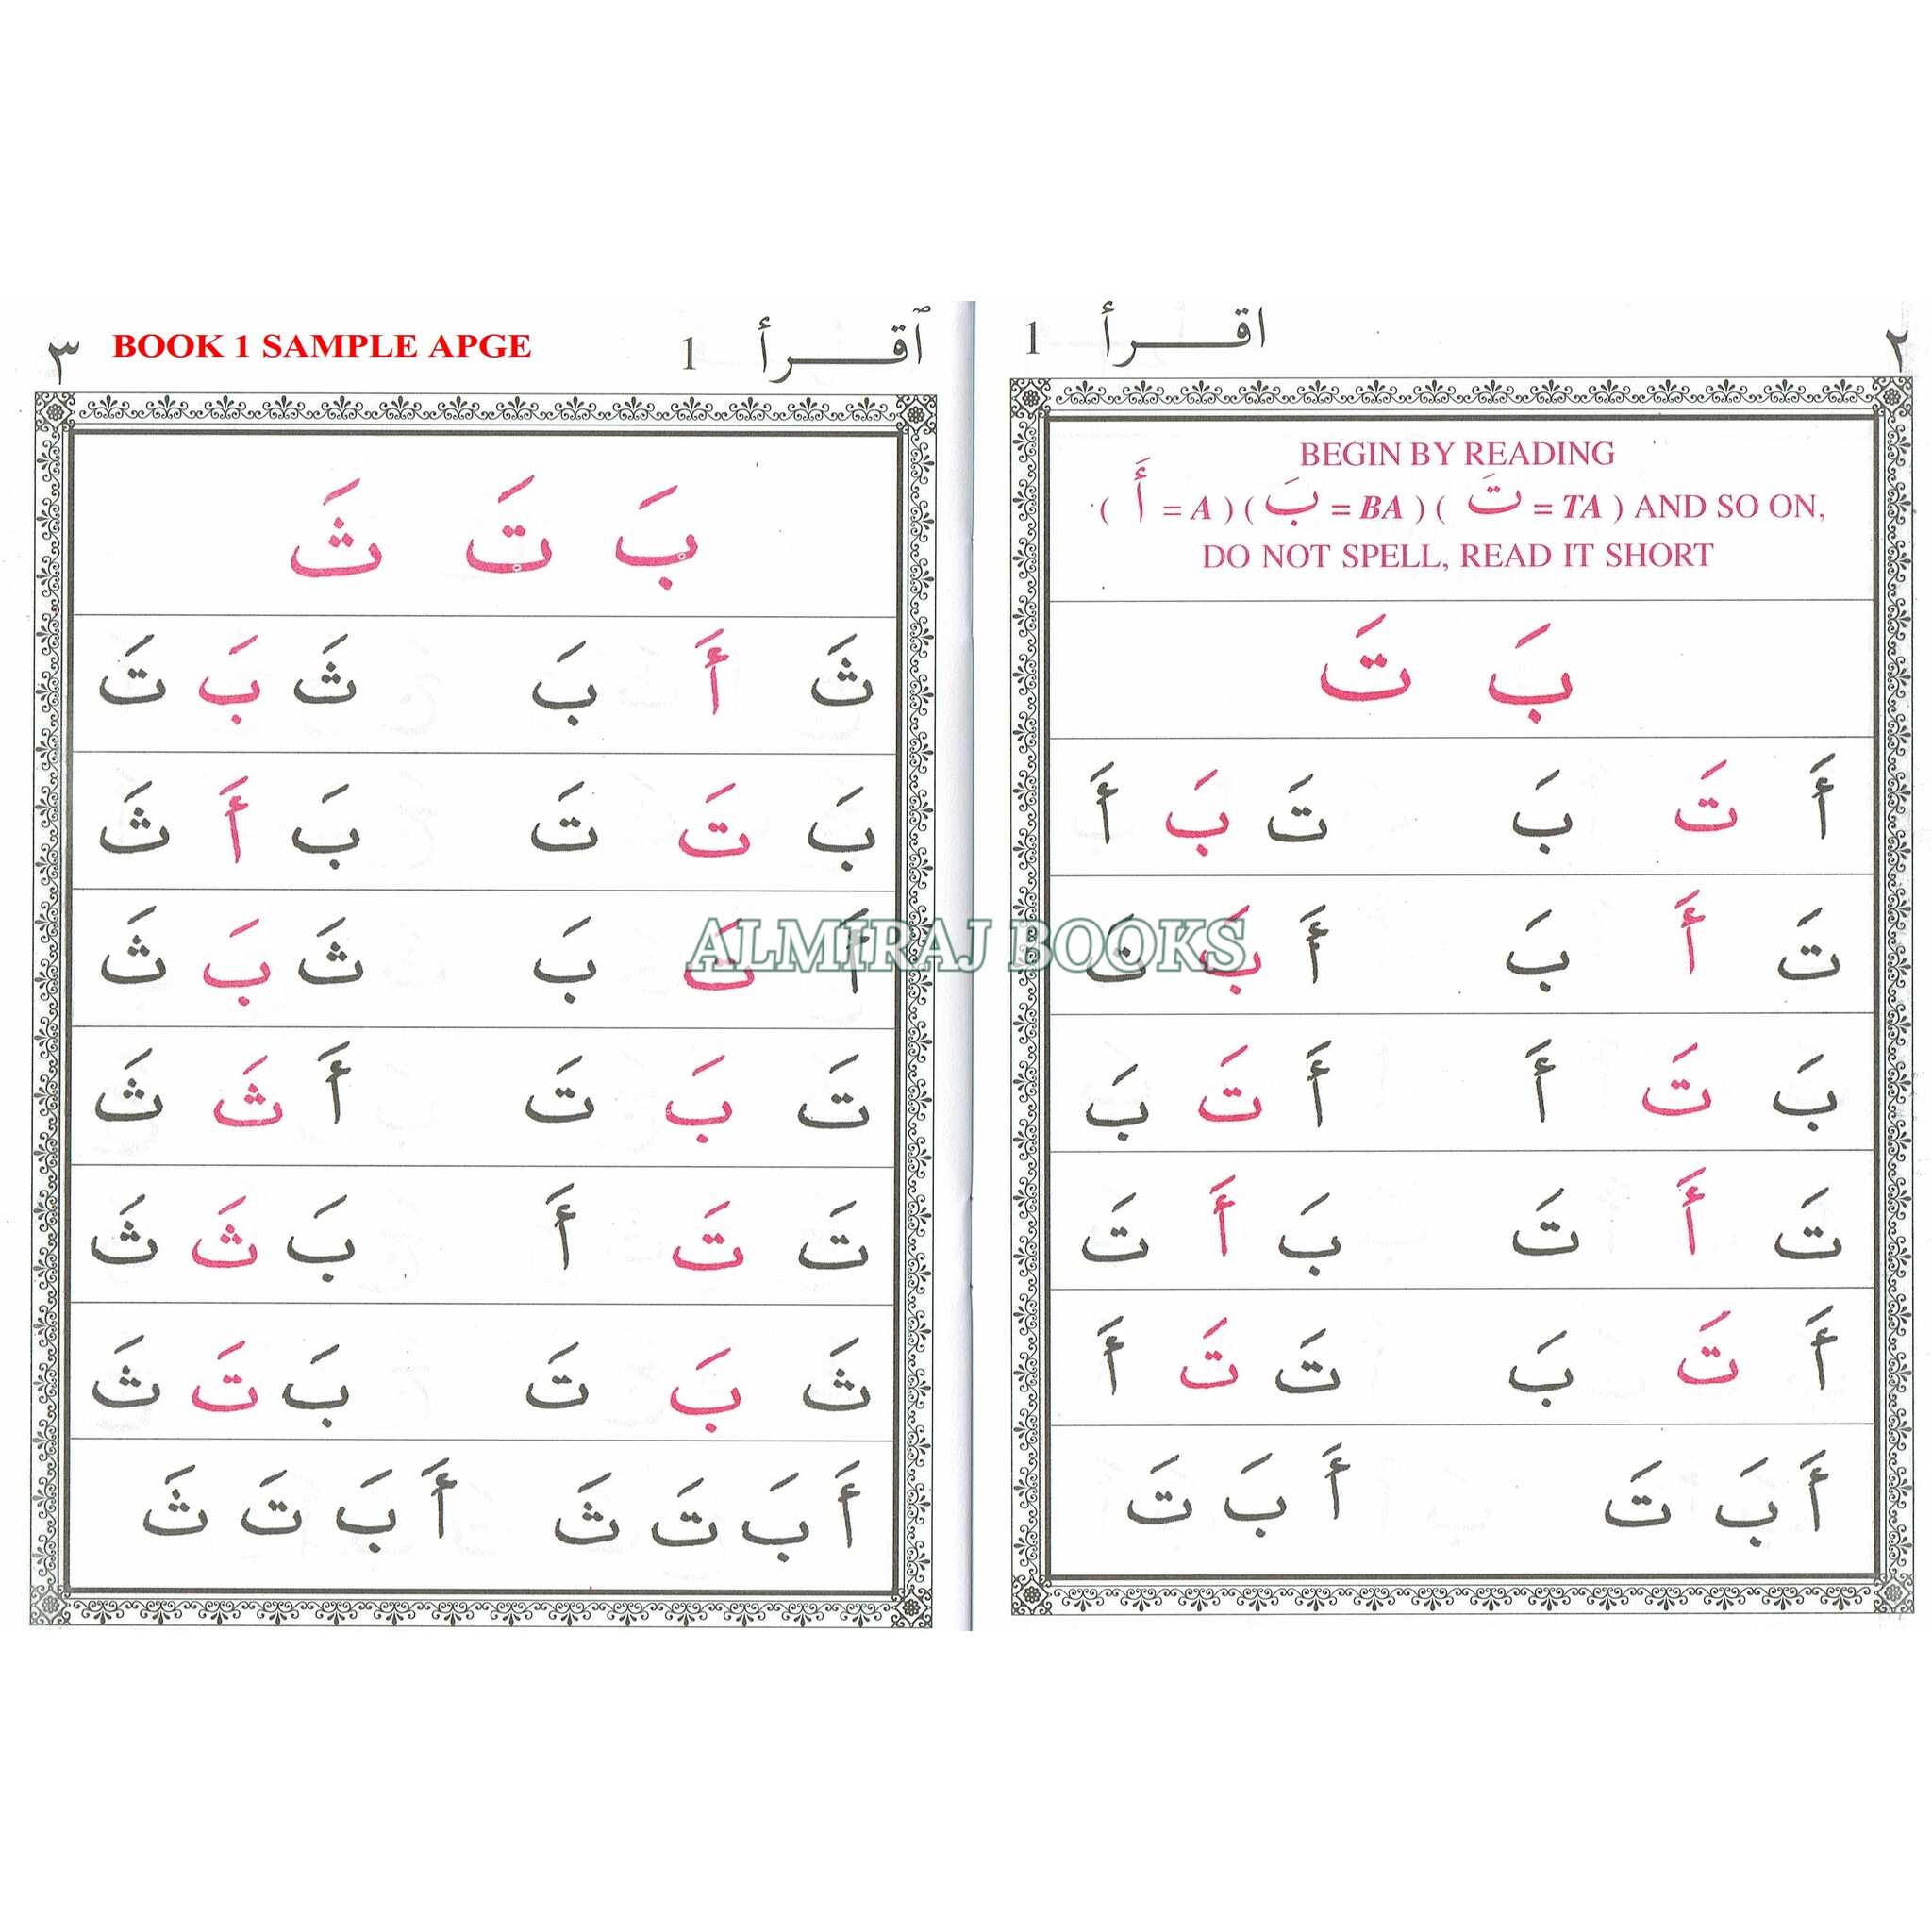 ٢ اقـــرأ 1
BEGIN BY READING
( أَ = A ) ( بَ = BA ) ( تَ = TA ) AND SO ON,
DO NOT SPELL, READ IT SHORT
بَ تَ
أَ تَ بَ تَ بَ أَ
تَ أَ بَ أَ بَ تَ
بَ تَ أَ أَ تَ بَ
تَ أَ تَ بَ أَ تَ
أَ تَ بَ تَ تَ أَ
أَ بَ تَ أَ بَ تَ
ٱقـــرأ 1 BOOK 1 SAMPLE APGE ٣
بَ تَ ثَ
ثَ أَ بَ ثَ بَ تَ
بَ تَ تَ بَ أَ ثَ
أَ تَ بَ ثَ بَ ثَ
تَ بَ تَ أَ ثَ ثَ
تَ تَ أَ بَ ثَ ثَ
ثَ بَ تَ بَ تَ ثَ
أَ بَ تَ ثَ أَ بَ تَ ثَ
ALMIRAJ BOOKS